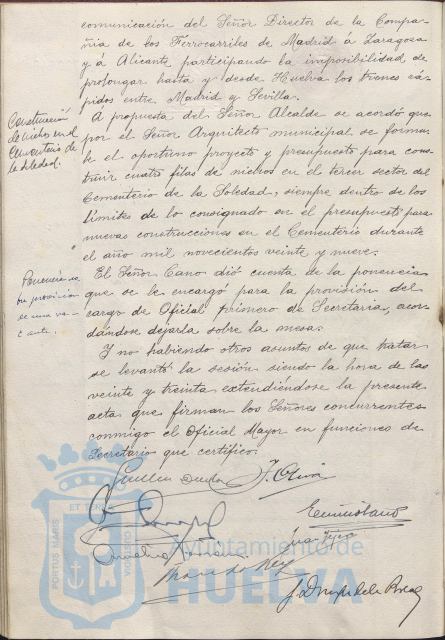 comunicación del Señor Director de la Compa-
ñia de los Ferrocarriles de Madrid á Zaragoza
y á Alicante participando la imposibilidad de
prolongar hasta y desde Huelva los trenes rá-
pidos entre Madrid y Sevilla.
Construcción
de nichos en el
Cementerio de
la Soledad.
A propuesta del Señor Alcalde se acordó que
por el Señor Arquitecto municipal se forma-
se el oportuno proyecto y presupuesto para cons-
truir cuatro filas de nichos en el tercer sector del
Cementerio de la Soledad, siempre dentro de los
límites de lo consignado en el presupuesto para
nuevas construcciones en el Cementerio durante
el año mil novecientos veinte y nueve.
Ponencia so-
bre provision
de una va-
cante.
El Señor Cano dió cuenta de la ponencia
que se le encargó para la provisión del
cargo de Oficial primero de Secretaria, acor-
dándose dejarla sobre la mesa.
Y no habiendo otros asuntos de que tratar
se levantó la sesión siendo la hora de las
veinte y treinta extendiéndose la presente
acta que firman los Señores concurrentes
conmigo el Oficial Mayor en funciones de
Secretario que certifico.
J. Oliva
PORTUS MARIS
ET TERRE
Ayuntamiento de
HUELVA